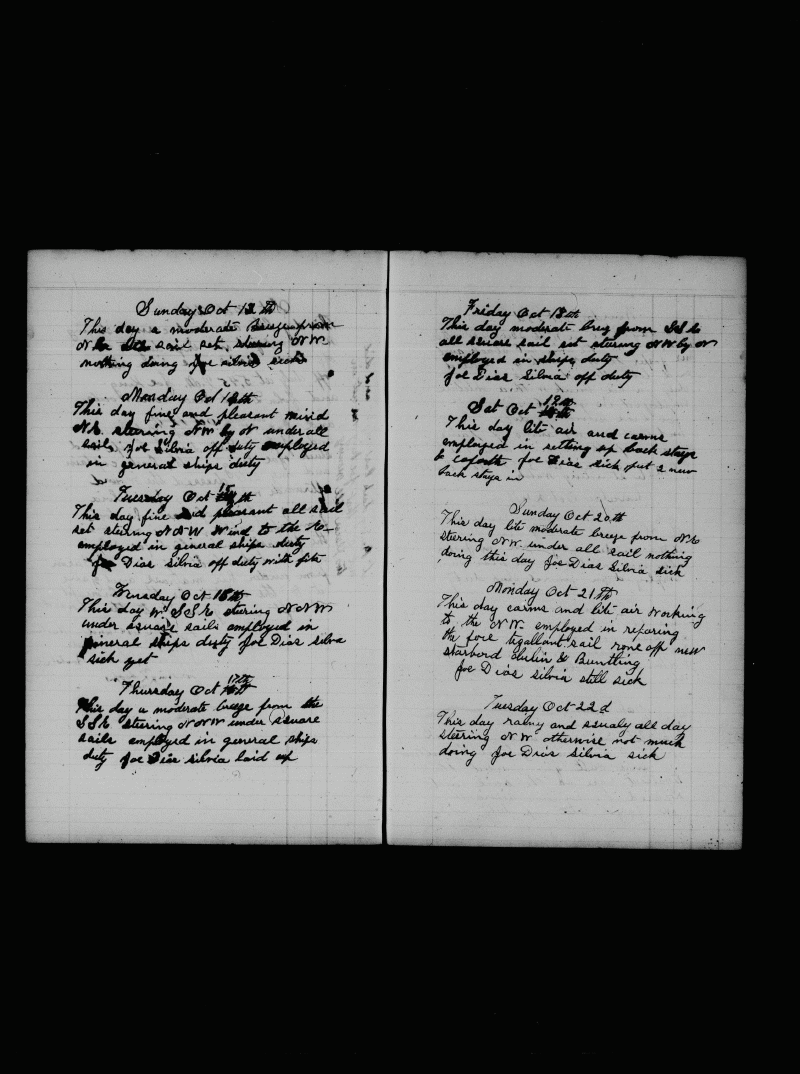 Sunday Oct 13 th
This day a moderate Breeze from
N E all sail set steering N W
nothing doing Joe silvia sick
Monday Oct 14th
This day fine and pleasant wind
N.E. steering N W by N under all
sail Joe Silvia off duty employed
in general ships duty
Tuesday Oct 15th
This day fine and pleasant all sail
set steering N N W Wind to the E
employed in general ships duty
Joe Dias silvia off duty with fits
Oct 16th
This day W. S S E steering N N W
under square sails employed in
general ships duty Joe Dias silva
sick yet
Thursday Oct 17th
This day a moderate breeze from the
S S E steering N N W under square
sails employed in general ships
duty Joe Dias silvia laid up
Friday Oct 18th
This day moderate breez from S S E
all square sail set steering N W by N
employed in ships duty
Joe Dias Silvia off duty
Sat Oct 19th
This day lite air and carms
employed in setting up back stays
Joe Dias sick put 2 new
back stays in
Sunday Oct 20th
This day lite moderate breeze from N E
steering N W. under all sail nothing
doing this day Joe Dias Silvia sick
Monday Oct 21th
This day carms and lite air Working
to the N W. employed in reparing
the fore tigallant sail rove off new
starbord Clulin & Buntling
Joe Dias silvia still sick
Tuesday Oct 22d
This day rainy and squaly all day
steering N W. otherwise not much
doing Joe Dias Silvia sick